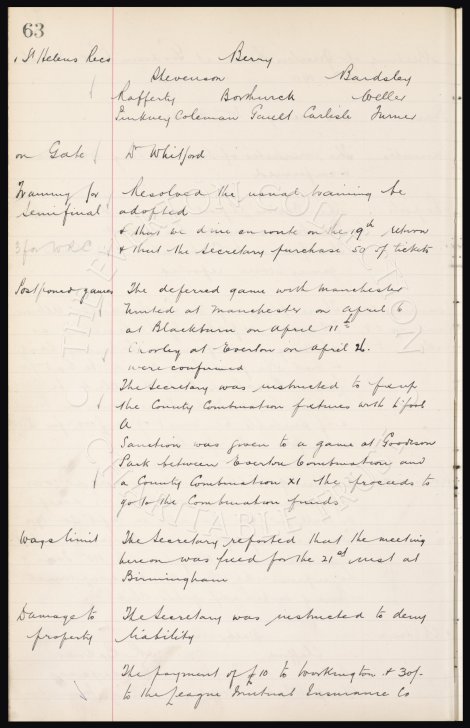 63
v St Helens Recs
Berry
Stevenson Bardsley
Rafferty Borthwick Weller
Pinkney Coleman Gault Carlisle Turner
on Gate Dr Whitford
Training for Resolved the usual training be
Semifinal adopted
& that we dine en route on the 19th return
3 for WRC & that the Secretary purchase 50 5/- tickets
Postponed games The deferred game with Manchester
United at Manchester on April 6
at Blackburn on April 11th
Burnley at Everton on April 26.
were confirmed
The Secretary was instructed to fix up
the County Combination fixtures with L'pool
A
Sanction was given to a game at Goodison
Park between Everton Combination and
a County Combination XI the proceeds to
go to the Combination funds
Wages limit The Secretary reported that the meeting
hereon was fixed for the 21st inst at
Birmingham
Damage to The Secretary was instructed to deny
property liability
The payment of £10 to Workington & 30/-
to the League Mutual Insurance Co
THE EVERTON COLLECTION
CHARITABLE TRUST